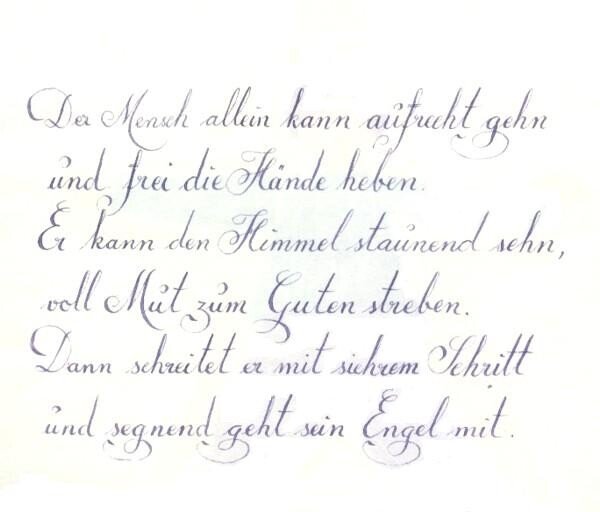 Der Mensch allein kann aufrecht gehn
und frei die Hände heben.
Er kann den Himmel staunend sehn,
voll Mut zum Guten streben.
Dann schreitet er mit sichrem Schritt
und segnend geht sein Engel mit.